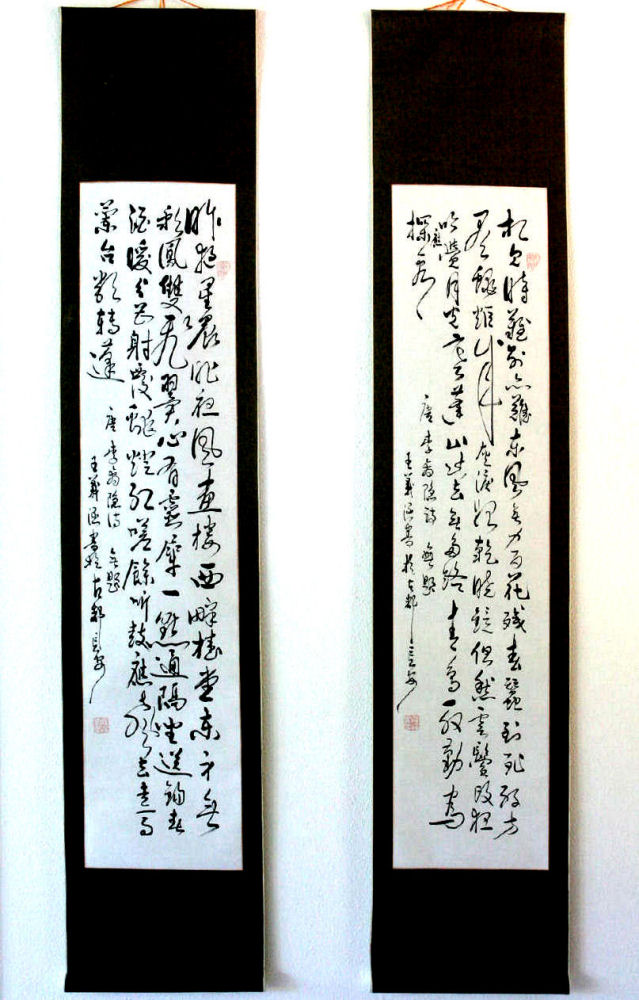 相見時難別亦難東風無力百花殘春蠶到死絲方
盡蠟炬成灰淚始乾曉鏡但愁雲鬢改夜
吟應覺月光寒蓬山此去無多路青鳥殷勤為
探看
唐李商隱詩無題
王義書於古都長安
昨夜星辰昨夜風畫樓西畔桂堂東身無
彩鳳雙飛翼心有靈犀一點通隔座送鈎春
酒暖分曹射覆蠟燈紅嗟餘聽鼓應官去走馬
蘭台類轉蓬
唐李商隱詩無題
王義書於古都長安